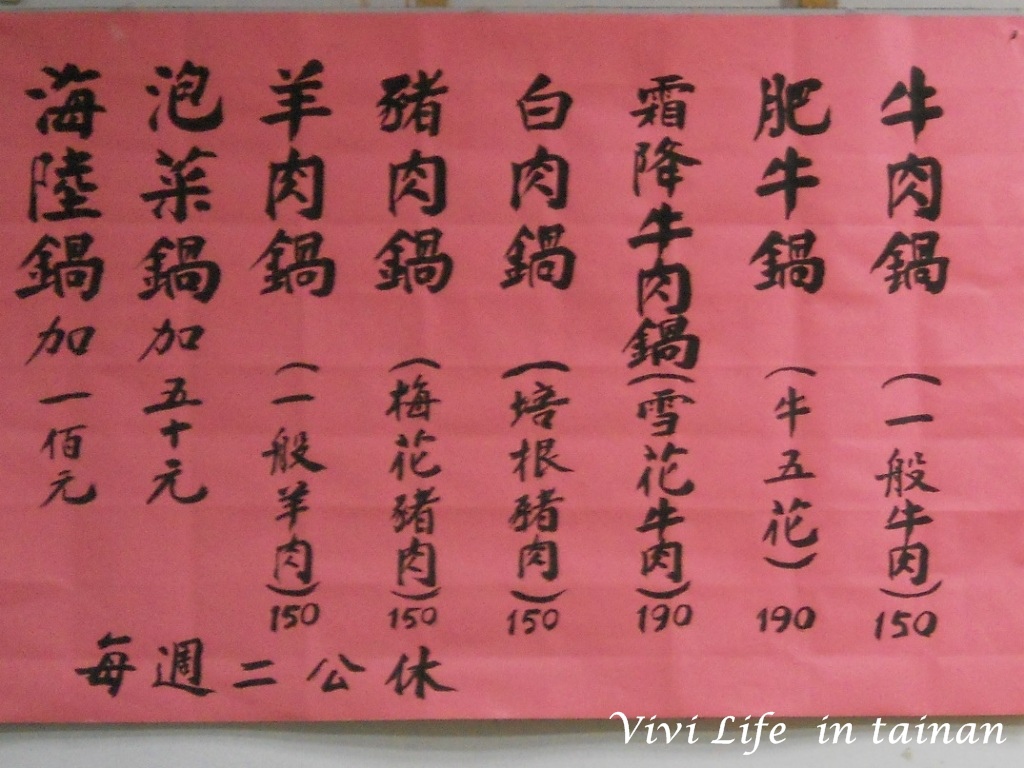 牛肉鍋(一般牛肉)150
肥牛鍋(牛五花)190
霜降牛肉鍋(雪花牛肉)190
白肉鍋(培根豬肉)150
豬肉鍋(梅花豬肉)150
羊肉鍋(一般羊肉)150
泡菜鍋加五十元
海陸鍋加一佰元
每週二公休
Vivi Life in tainan